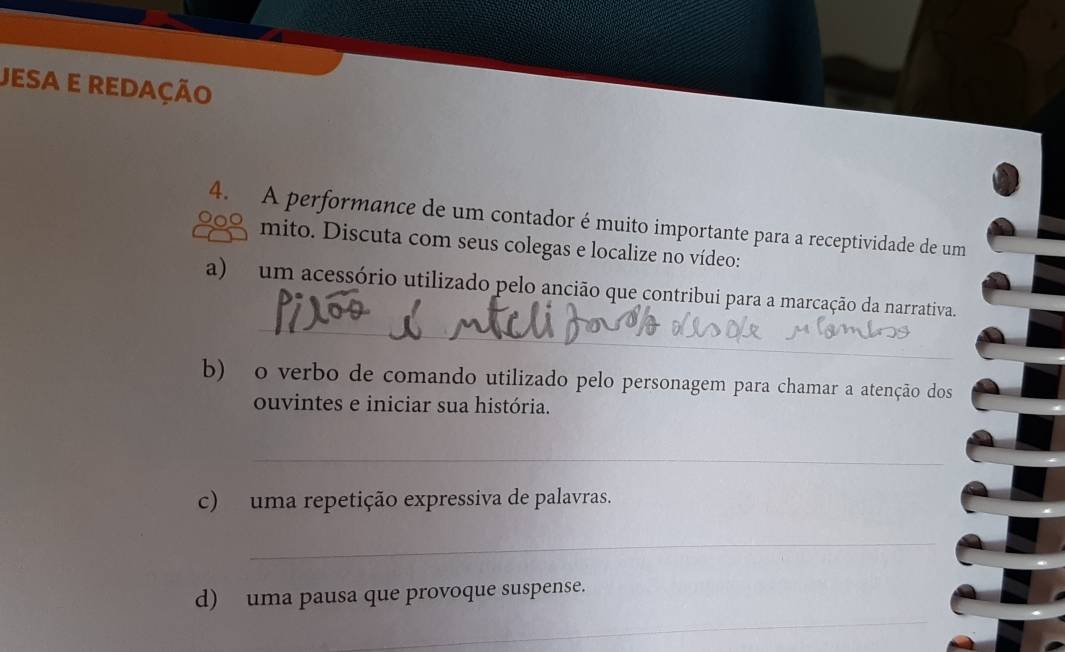 JESA E REDAÇÃO
4. A performance de um contador é muito importante para a receptividade de um
mito. Discuta com seus colegas e localize no vídeo:
a) um acessório utilizado pelo ancião que contribui para a marcação da narrativa.
Pilão é
b) o verbo de comando utilizado pelo personagem para chamar a atenção dos
ouvintes e iniciar sua história.
c) uma repetição expressiva de palavras.
d) uma pausa que provoque suspense.